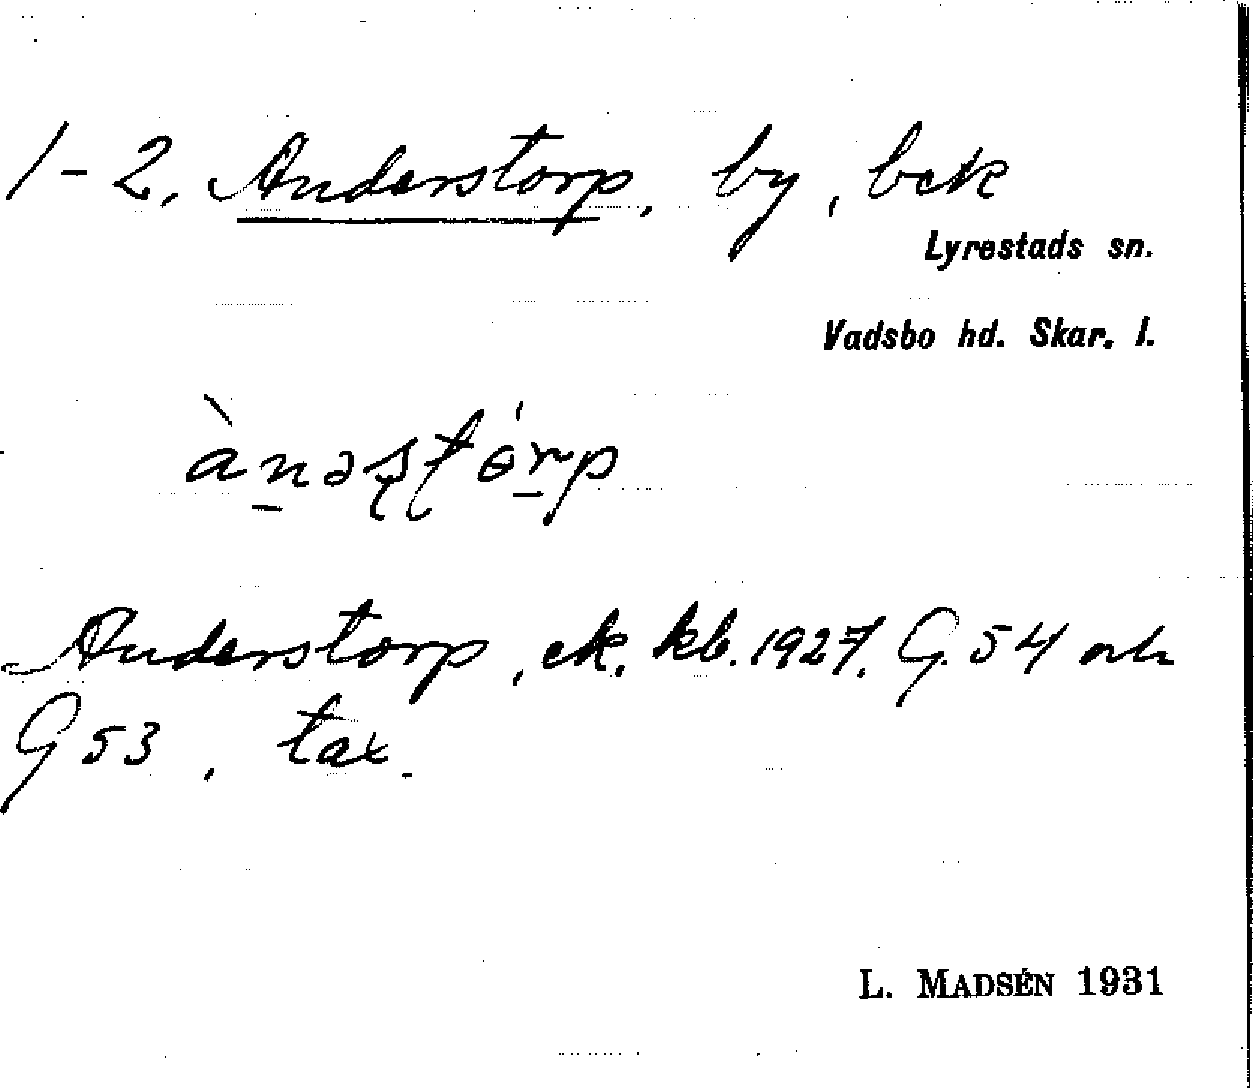 1-2. Anderstorp, by, bek
Lyrestads sn.
Vadsbo hd. Skar. l.
ànəștórp
Anderstorp, ek. kb. 1927. G. 54 och
G 53, tax.
L. MADSÉN 1931